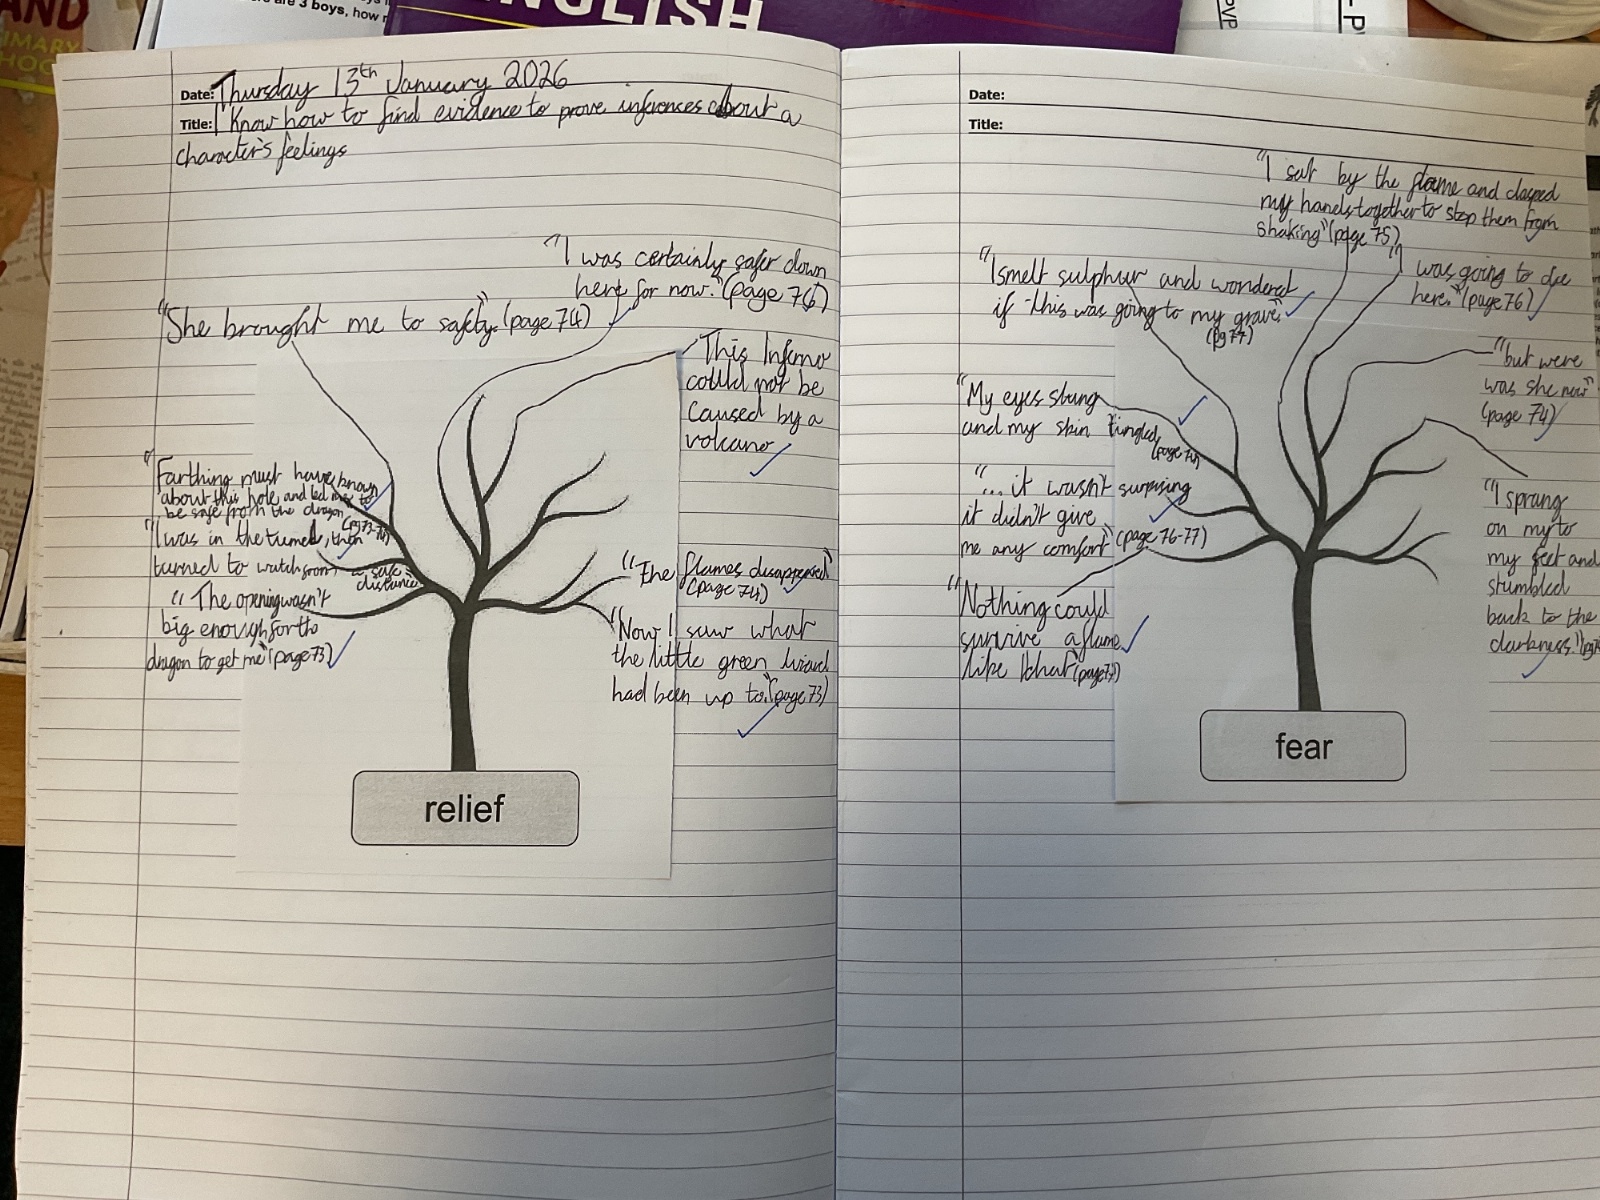 AND
IMARY
HOO
are 3 boys, how
ENGLISH
PVP
Date: Thursday 13th January 2026
Title: I Know how to find evidence to prove inferences about a
character's feelings
"I was certainly safer down
here for now." (page 76)
"She brought me to safety." (page 74)
"This Inferno
could not be
caused by a
volcano
"Farthing must have known
about this hole and led me to
be safe from the dragon" (pg 73-74)
"I was in the tunnel, then
turned to watch from a safe
distance
"The opening wasn't
big enough for the
dragon to get me" (page 73)
"The flames disappeared"
(page 74)
"Now I saw what
the little green lizard
had been up to." (page 73)
relief
Date:
Title:
"I sat by the flame and clasped
my hands together to stop them from
shaking" (page 75)
"I smelt sulphur and wondered
if this was going to my grave."
(pg 77)
"I was going to die
here." (page 76)
"My eyes stung
and my skin tingled"
(page 74)
"but were
was she now"
(page 74)
"... it wasn't surprising
it didn't give
me any comfort" (page 76-77)
"I sprang
on my to
my feet and
stumbled
back to the
darkness." (pg
"Nothing could
survive a flame
like that" (page
fear